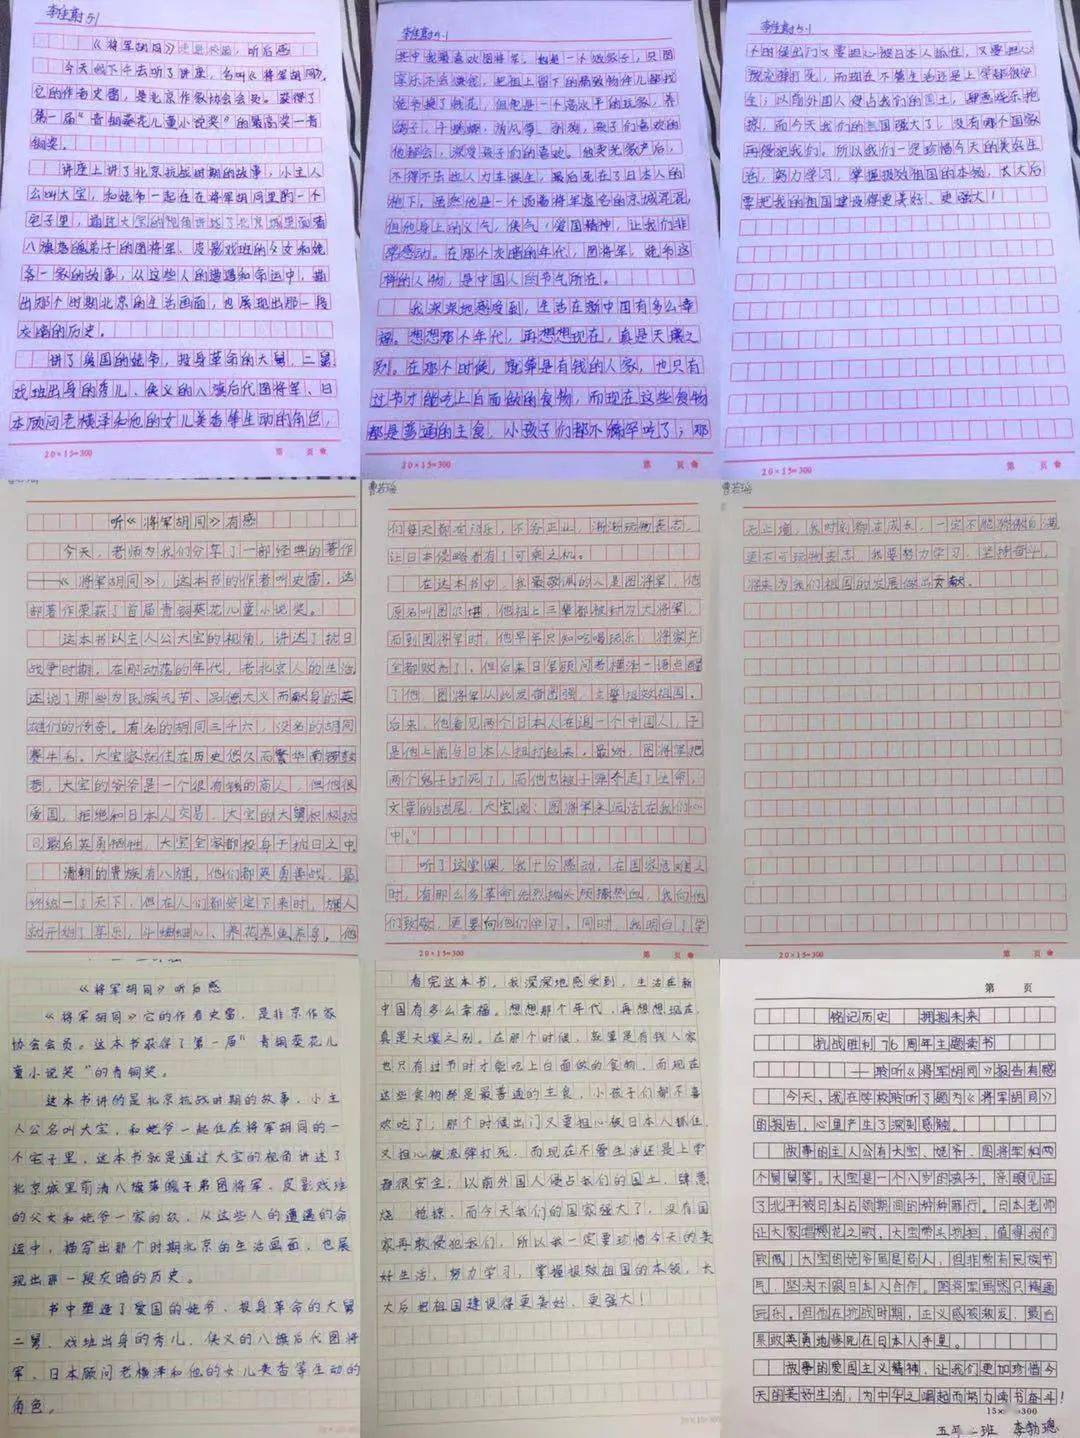 李佳蔚 5.1
《将军胡同》 听后感
今天的下午去听了讲座，名叫《将军胡同》，
它的作者史雷，是北京作家协会会员。获得了
第一届“青铜葵花儿童小说奖”的最高奖一青
铜奖。
讲座上讲了北京抗战时期的故事，小主人
公叫大宝，和姥爷一起住在将军胡同里的一个
宅子里，通过大宝的视角讲述了北京城里面着
八旗 子的图将军、皮影戏班的父女和姥
爷一家的故事，从这些人的遭遇和命运中，描
出那个时期北京的生活画面，也展现出那一段
灰暗的历史。
讲了爱国的姥爷，投身革命的大舅、二舅、
戏班出身的秀儿、侠义的八旗后代图将军、日
本顾问老横泽和他的女儿美香等生动的角色，
20×15=300 第 页
李佳蔚5.1
其中我最喜欢图将军，他是一个败家子，只图
享乐不会 ，把祖上留下的 物件儿都找
换了钱花，但他是一个高水平的玩家，养
鸽子，斗蛐蛐、 、 ，孩子们喜欢的
他都会，深受孩子们的喜欢。他卖光家产后，
不得不去做人力车谋生，最后死在了日本人的
枪下，虽然他是一个顶着将军虚名的京城混混，
但他身上的义气，侠气，爱国精神，让我们非
常感动。在那个灰暗的年代，图将军，姥爷这
样的人物，是中国人的节气所在。
我深深地感受到，生活在新中国有多么幸
福。想想那个年代，再想想现在，真是天壤之
别。在那个时候，就算是有钱的人家，也只有
过节才能吃上白面做的食物，而现在这些食物
都是普通的主食，小孩子们都不稀罕吃了；那
20×15=300 第 页
李佳蔚5.1
个时候出门又要担心被日本人抓住，又要担心
被流弹打死，而现在不管生活还是上学都很安
全；以前外国人侵占我们的国土，肆意烧杀抢
掠，而今天我们的祖国强大了，没有哪个国家
再侵犯我们。所以我们一定珍惜今天的美好生
活，努力学习，掌握报效祖国的本领，长大后
要把我的祖国建设得更美好、更强大！
20×15=300 第 页
曹若瑶
听《将军胡同》有感
今天，老师为我们分享了一部经典的著作
——《将军胡同》，这本书的作者叫史雷，这
部著作荣获了首届青铜葵花儿童小说奖。
这本书以主人公大宝的视角，讲述了抗日
战争时期，在那动荡的年代，老北京人的生活，
述说了那些为民族气节、品德大义而献身的英
雄们的传奇。有名的胡同三千六，没名的胡同
赛牛毛，大宝家就住在历史悠久而繁华南锣鼓
巷，大宝的爷爷是一个很有钱的商人，但他很
爱国，拒绝和日本人交易，大宝的大舅积极抗
日，最后英勇牺牲，大宝全家都投身于抗日之中
清朝的贵族有八旗，他们都英勇善战，最
终统一了天下，但在人们都安定下来时，旗人
就开始了享乐，斗蛐蛐儿、养花养鱼养鸟。他
曹若瑶
们每天都在闲乐，不务正业，渐渐玩物丧志，
让日本侵略者有了可乘之机。
在这本书中，我最敬佩的人是图将军，他
原名叫图尔堪，他祖上三辈都被封为大将军，
而到图将军时，他早年只知吃喝玩乐，将家产
全都败光了，但后来日军顾问老横泽一语点醒
了他，图将军从此发奋图强，立誓报效祖国，
后来，他看见两个日本人在追一个中国人，于
是他上前与日本人扭打起来，最终，图将军把
两个鬼子打死了，而他也被子弹夺走了生命，
文章的结尾，大宝说：图将军永远活在我们心
中。”
听了这堂课，我十分感动，在国家危难之
时，有那么多革命先烈抛头颅洒热血，我向他
们致敬，更要向他们学习，同时，我明白了学
20×15=300 第 页
无止境，我时刻都在成长，一定不能骄傲自满
更不可玩物丧志，我要努力学习，坚持奋斗，
将来为我们祖国的发展做出贡献。
20×15=300 第 页
《将军胡同》听后感
《将军胡同》它的作者史雷，是北京作家
协会会员。这本书获得了第一届“青铜葵花儿
童小说奖”的青铜奖。
这本书讲的是北京抗战时期的故事，小主
人公名叫大宝，和姥爷一起住在将军胡同的一
个宅子里，这本书就是通过大宝的视角讲述了
北京城里前清八旗 子弟图将军、皮影戏班
的父女和姥爷一家的故，从这些人的遭遇的命
运中，描写出那个时期北京的生活画面，也展
现出那一段灰暗的历史。
书中塑造了爱国的姥爷、投身革命的大舅
二舅、戏班出身的秀儿、侠义的八旗后代图将
军、日本顾问老横泽和他的女儿美香等生动的
角色。
看完这本书，我深深地感受到，生活在新
中国有多么幸福。想想那个年代，再想想现在，
真是天壤之别。在那个时候，就算是有钱人家
也只有过节时才能吃上白面做的食物，而现在
这些食物都是最普通的主食，小孩子们都不喜
欢吃了；那个时候出门又要担心被日本人抓住，
又担心被流弹打死，而现在不管生活还是上学
都很安全；以前外国人侵占我们的国土，肆意
烧 抢掠，而今天我们的国家强大了，没有国
家再敢侵犯我们，所以我一定要珍惜今天的美
好生活，努力学习，掌握报效祖国的本领，长
大后把祖国建设得更美好、更强大！
第 页
铭记历史 拥抱未来
抗战胜利76周年主题读书
——聆听《将军胡同》报告有感
今天，我在学校聆听了题为《将军胡同》
的报告，心里产生了深刻感触。
故事的主人公有大宝、姥爷、图将军和两
个舅舅等。大宝是一个八岁的孩子，亲眼见证
了北平被日本占领期间的种种罪行。日本老师
让大家唱樱花之歌，大宝带头抗拒，值得我们
钦佩！大宝的姥爷虽是商人，但非常有民族节
气，坚决不跟日本人合作。图将军虽然只精通
玩乐，但他在抗战时期，正义感被激发，最后
果敢英勇地惨死在日本人手里。
故事的爱国主义精神，让我们更加珍惜今
天的美好生活，为中华之崛起而努力读书奋斗！
15× =300
五年 班 李勃璁